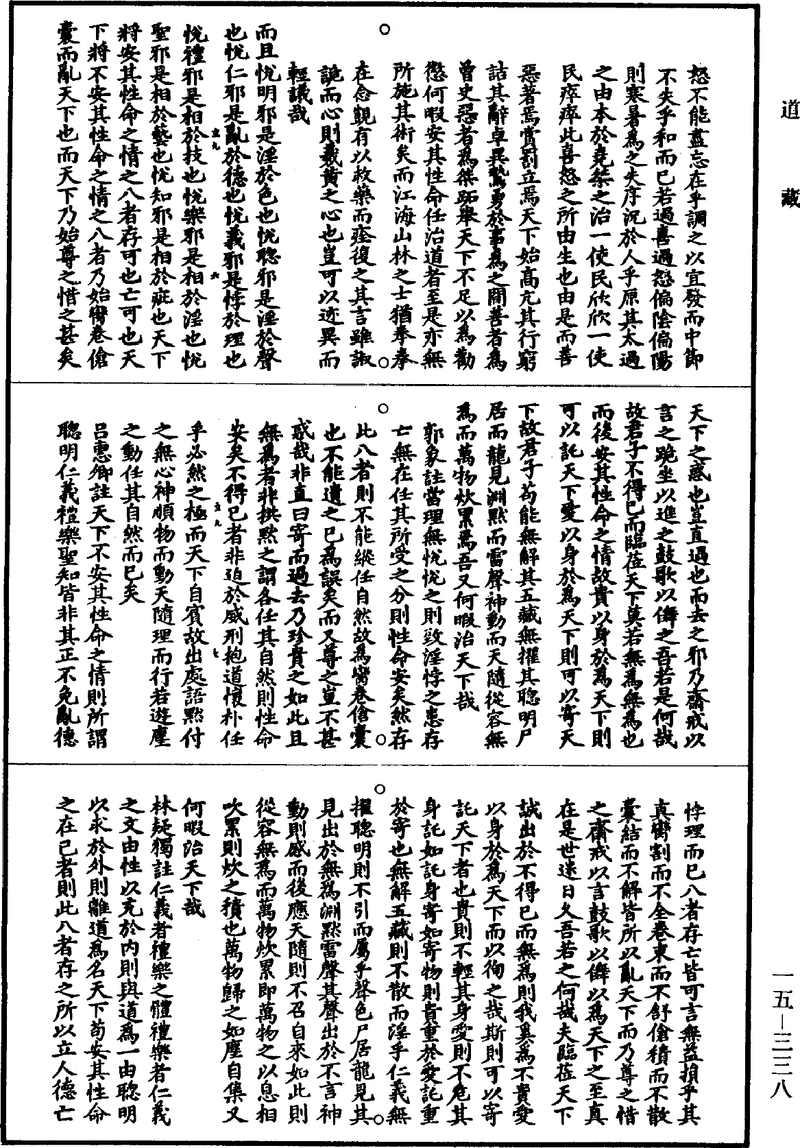 道藏
怒不能盡忘在乎調之以宜發而中節
不失乎和而已若過喜過怒偏陰偏陽
則寒暑為之失序況於人乎原其太過
之由本於堯桀之治一使民欣欣一使
民瘁瘁此喜怒之所由生也由是而善
惡著焉賞罰立焉天下始高亢其行窮
詰其辭卓異驚勇於事為之間善者為
曾史惡者為桀跖舉天下不足以為勸
懲何暇安其性命任治道者至是亦無
所施其術矣而江海山林之士猶拳拳
在念覬有以救樂而痊復之其言雖諔
詭而心則羲黃之心也豈可以迹異而
輕議哉
而且悅明邪是淫於色也悅聰邪是淫於聲
也悅仁邪是亂於德也悅義邪是悖於理也
悅禮邪是相於技也悅樂邪是相於淫也悅
聖邪是相於藝也悅知邪是相於疵也天下
將安其性命之情之八者存可也亡可也天
下將不安其性命之情之八者乃始臠卷傖
囊而亂天下也而天下乃始尊之惜之甚矣
天下之惑也豈直過也而去之邪乃齋戒以
言之跪坐以進之鼓歌以儛之吾若是何哉
故君子不得已而臨莅天下莫若無為無為也
而後安其性命之情故貴以身於為天下則
可以託天下愛以身於為天下則可以寄天
下故君子苟能無解其五藏無擢其聰明尸
居而龍見淵默而雷聲神動而天隨從容無
為而萬物炊累焉吾又何暇治天下哉
郭象註當理無悅悅之則致淫悖之患存
亡無在任其所受之分則性命安矣然存
此八者則不能縱任自然故為臠卷傖囊
也不能遺之已為誤矣而又尊之豈不甚
惑哉非直曰寄而過去乃珍貴之如此且
無為者非拱默之謂各任其自然則性命
安矣不得已者非迫於威刑抱道懷朴任
乎必然之極而天下自賓故出處語默付
之無心神順物而動天隨理而行若遊塵
之動任其自然而已矣
呂惠卿註天下不安其性命之情則所謂
聰明仁義禮樂聖知皆非其正不免亂德
悖理而已八者存亡皆可言無益損乎其
真臠割而不全卷束而不舒傖積而不散
囊結而不解皆所以亂天下而乃尊之惜
之齋戒以言鼓歌以儛以為天下之至真
在是世迷日久吾若之何哉夫臨莅天下
誠出於不得已而無為則我莫為不貴愛
以身於為天下而以徇之哉斯則可以寄
託天下者也貴則不輕其身愛則不危其
身託如託身寄如寄物則貴重於愛託重
於寄也無解五藏則不散而淫乎仁義無
擢聰明則不引而屬乎聲色尸居龍見其
見出於無為淵默雷聲其聲出於不言神
動則感而後應天隨則不召自來如此則
從容無為而萬物炊累即萬物之以息相
吹累則炊之積也萬物歸之如塵自集又
何暇治天下哉
林疑獨註仁義者禮樂之體禮樂者仁義
之文由性以充於內則與道為一由聰明
以求於外則離道為名天下苟安其性命
之在已者則此八者存之所以立人德亡
一五—三三八